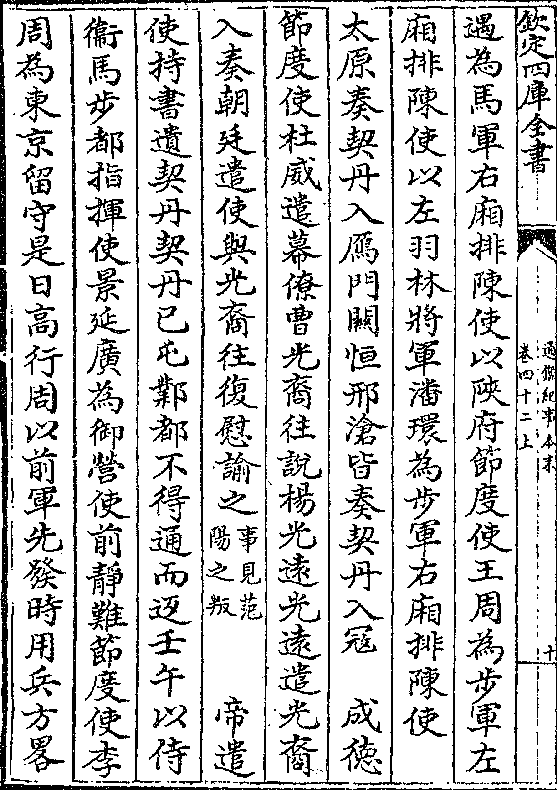 欽定四庫全書
通鑑紀事本末
卷四十二上
十
遇為馬軍右廂排陳使以陜府節度使王周為步軍左
廂排陳使以左羽林將軍潘環為步軍右廂排陳使
太原奏契丹入鴈門關恒邢滄皆奏契丹入冦　成德
節度使杜威遣幕僚曹光裔往說楊光遠光遠遣光裔
入奏朝廷遣使與光裔往復慰諭之事見范陽之叛　帝遣
使持書遺契丹契丹已屯鄴都不得通而返壬午以侍
衞馬步都指揮使景延廣為御營使前靜難節度使李
周為東京留守是日高行周以前軍先發時用兵方畧